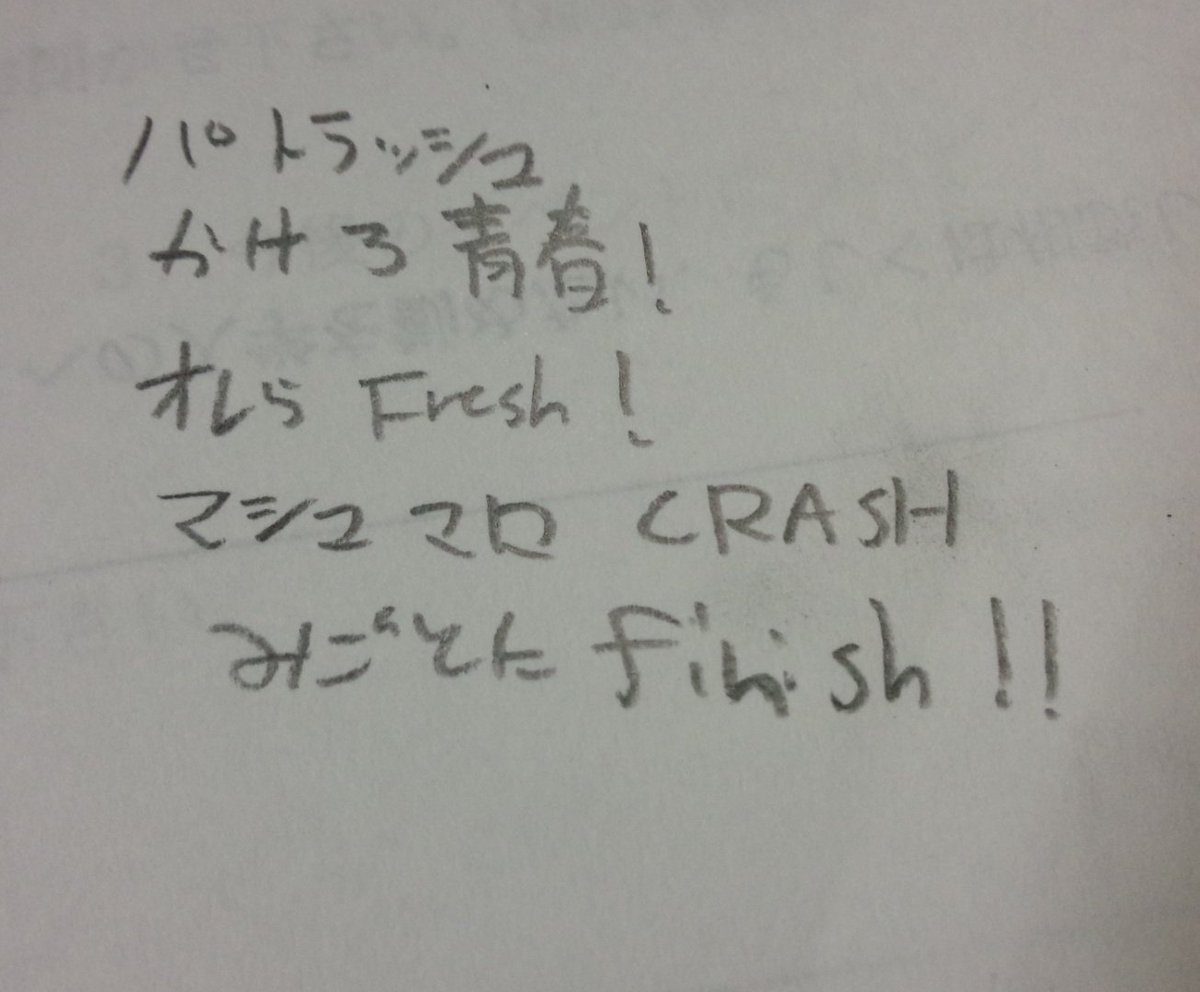 パトラッシュ
かけろ青春!
オレら Fresh!
マシュマロ CRASH
みごとに finish!!